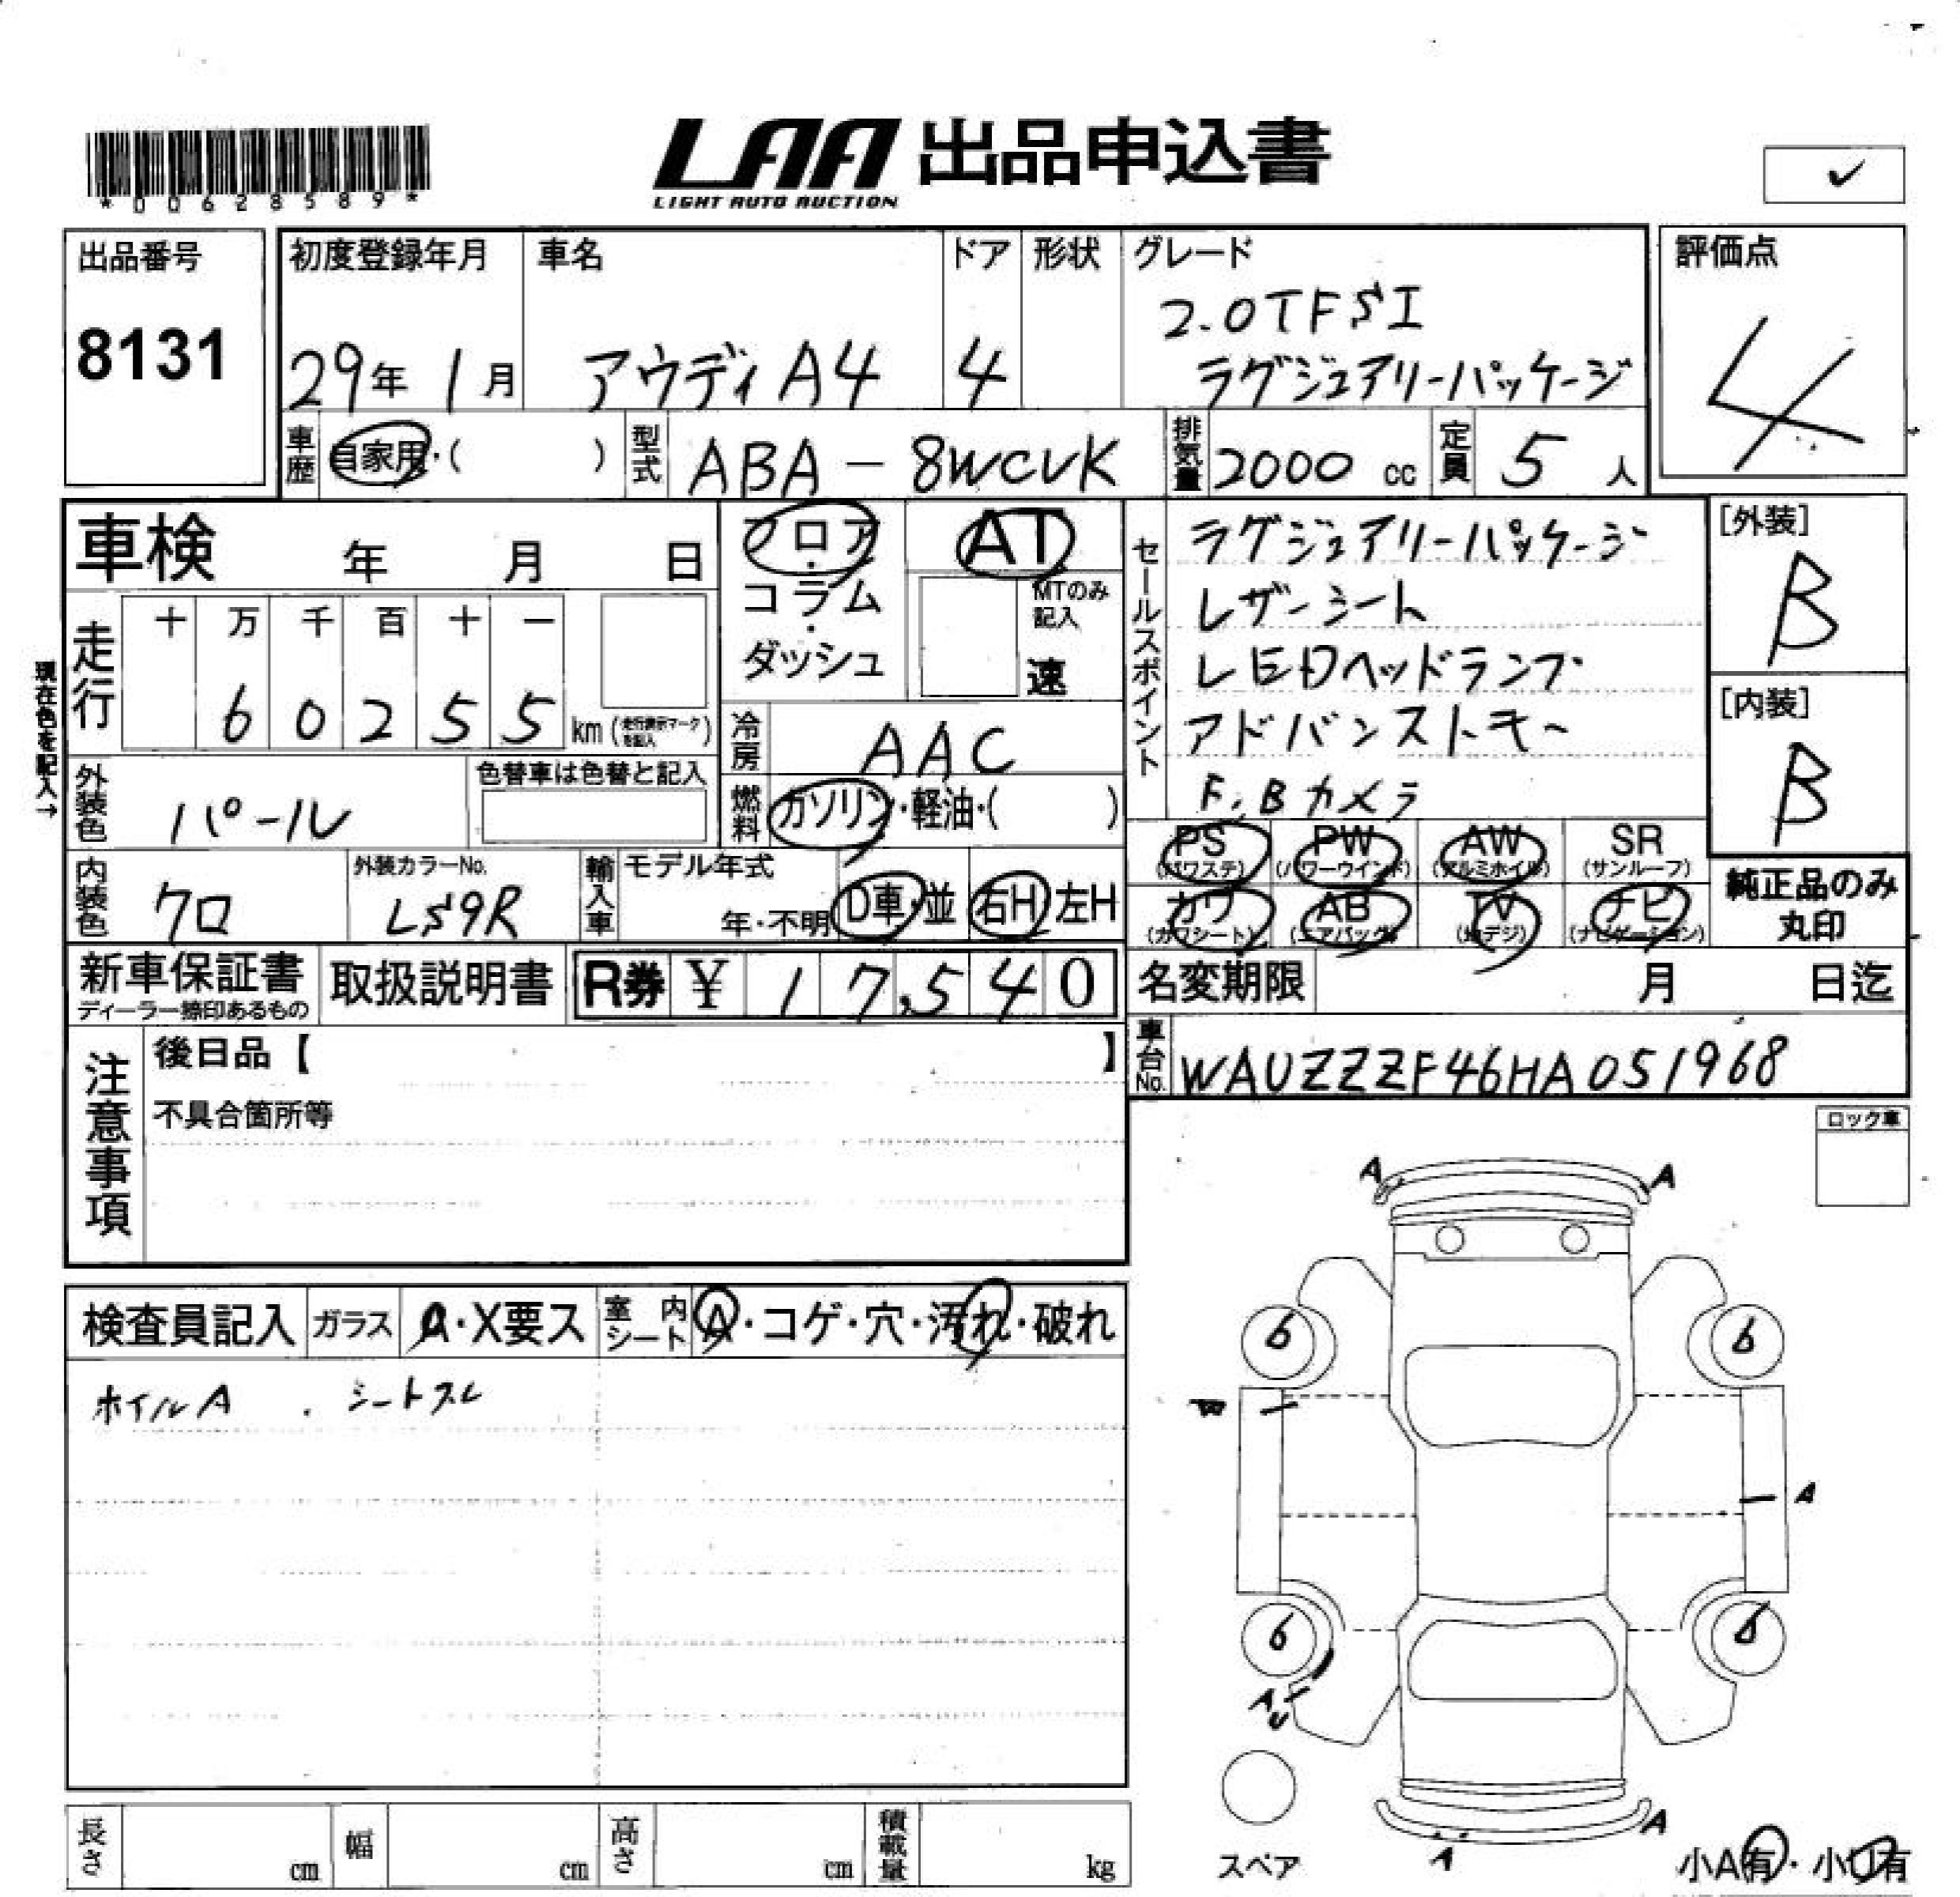 *00628589*
LAA 出品申込書
LIGHT AUTO AUCTION
✓
出品番号
8131
初度登録年月
29年 1月
車名
アウディ A4
ドア
4
形状
グレード
2.0TFSI
ラグジュアリーパッケージ
評価点
4
車歴 自家用・( )
型式 ABA-8WCVK
排気量 2000 cc
定員 5 人
車検 年 月 日
走行 十 万 千 百 十 一
6 0 2 5 5 km (走行表示マークを記入)
現在色を記入→
外装色 パール
色替車は色替と記入
内装色 クロ
外装カラーNo.
LS9R
フロア・コラム・ダッシュ
AT
MTのみ記入
速
冷房 AAC
燃料 ガソリン・軽油・( )
輸入車 モデル年式
年・不明 D車・並 右H 左H
セールスポイント
ラグジュアリーパッケージ
レザーシート
LEDヘッドランプ
アドバンストキー
F,Bカメラ
[外装]
B
[内装]
B
PS (パワステ) PW (パワーウインド) AW (アルミホイル) SR (サンルーフ)
カワ (カワシート) AB (エアバック) TV (地デジ) ナビ (ナビゲーション)
純正品のみ
丸印
新車保証書
ディーラー捺印あるもの
取扱説明書
R券 ¥ 17,540
名変期限 月 日迄
車台No. WAUZZZF46HA051968
注意事項
後日品【 】
不具合箇所等
ロック車
検査員記入 ガラス A・X要ス 室内シート A・コゲ・穴・汚れ・破れ
ホイルA . シートスレ
A A
6 6
A
6 6
A
U
A
A
スペア
小A有・小U有
長さ cm 幅 cm 高さ cm 積載量 kg